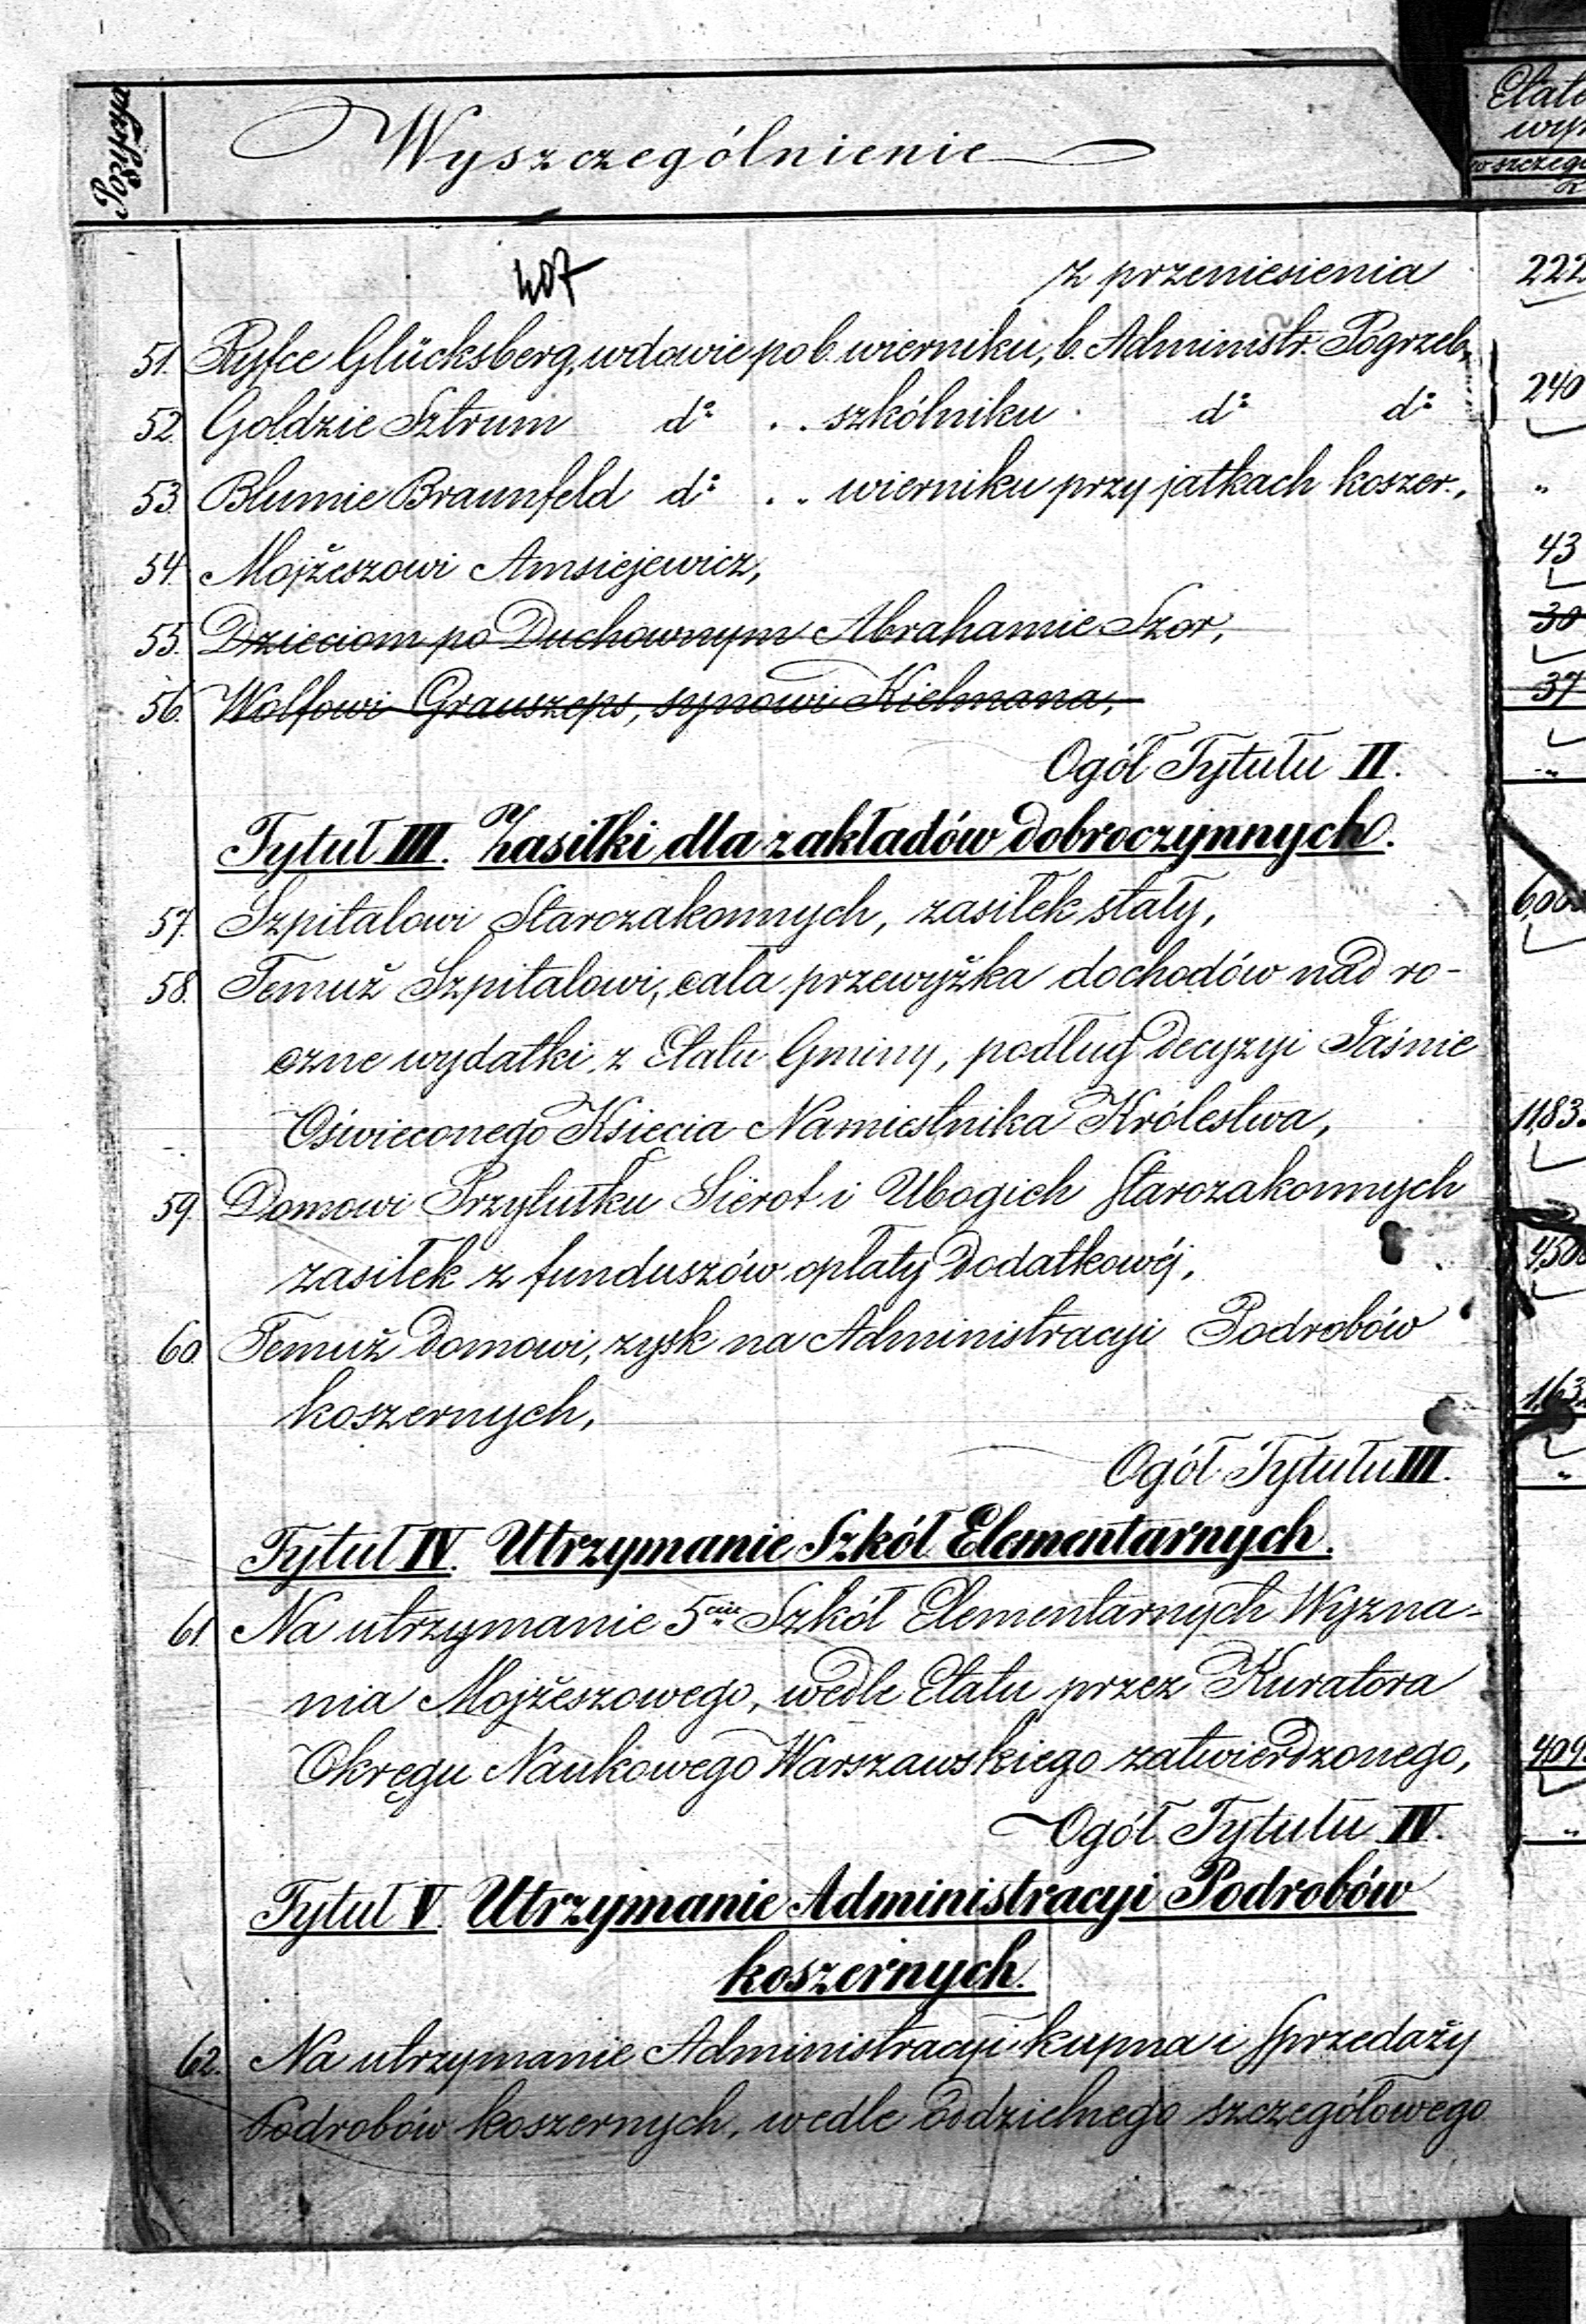 Pozycya
Wyszczególnienie
w szczegó
407
z przeniesienia
222
51. Ryfce Glücksberg, wdowie po b. wierniku, b. Administr. Pogrzeb.,
240
52. Goldzie Sztrum do .. szkólniku do do
53. Blumie Braunfeld do .. wierniku przy jatkach koszer., "
54. Mojżeszowi Amsiejewicz, 43
55. Dzieciom po Duchownym Abrahamie Szor, 30
56. Wolfowi Grauszeps, synowi Kielmana, 37
Ogół Tytułu II. "
Tytuł III. Zasiłki dla zakładów dobroczynnych.
57. Szpitalowi Starozakonnych, zasiłek stały, 6,00
58. Temuż Szpitalowi, cała przewyżka dochodów nad ro-
czne wydatki z Etatu Gminy, podług decyzyi Jaśnie
Oświeconego Księcia Namiestnika Królestwa, 11,83
59. Domowi Przytułku Sierot i Ubogich Starozakonnych
zasiłek z funduszów opłaty dodatkowéj, 4,50
60. Temuż Domowi, zysk na Administracyi Podrobów
koszernych, 1,63
Ogół Tytułu III. "
Tytuł IV. Utrzymanie Szkół Elementarnych.
61. Na utrzymanie 5ciu Szkół Elementarnych Wyzna-
nia Mojżeszowego, wedle Etatu przez Kuratora
Okręgu Naukowego Warszawskiego zatwierdzonego, 409
Ogół Tytułu IV. "
Tytuł V. Utrzymanie Administracyi Podrobów
koszernych.
62. Na utrzymanie Administracyi kupna i sprzedaży
Podrobów koszernych, wedle oddzielnego szczegółowego